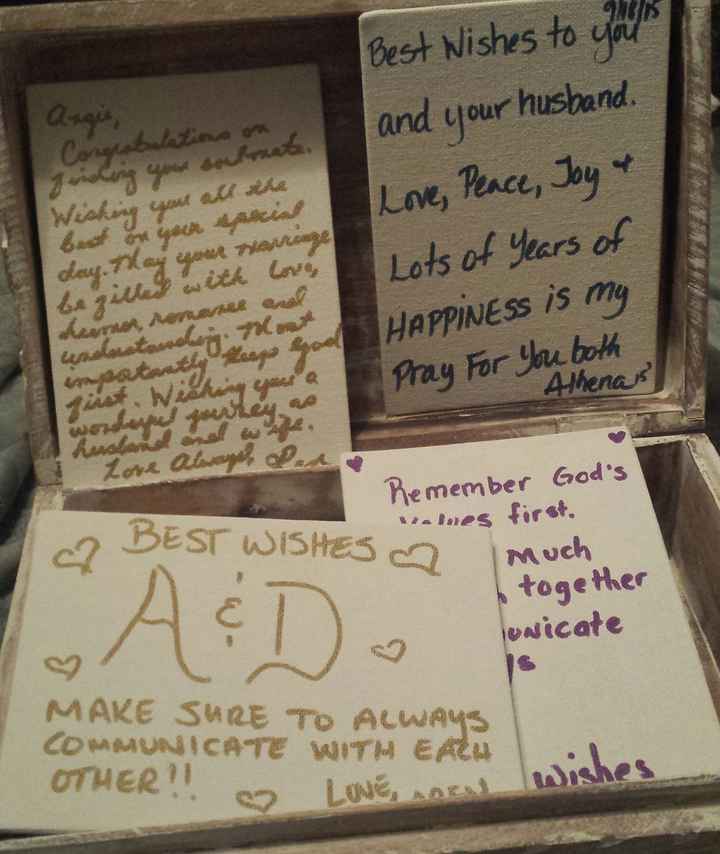 Angie,
Congratulations on
finding your soulmate.
Wishing you all the
best on your special
day. May your marriage
be filled with love,
humor, romance and
understanding. Most
importantly keep god
first. Wishing you a
wonderful journey as
husband and wife.
Love Always,
9/18/15
Best Wishes to you
and your husband.
Love, Peace, Joy +
Lots of Years of
HAPPINESS is my
Pray For You both
Athena
Remember God's
Values first.
Much
together
unicate
wishes
BEST WISHES
A & D
MAKE SURE TO ALWAYS
COMMUNICATE WITH EACH
OTHER!!
LOVE,